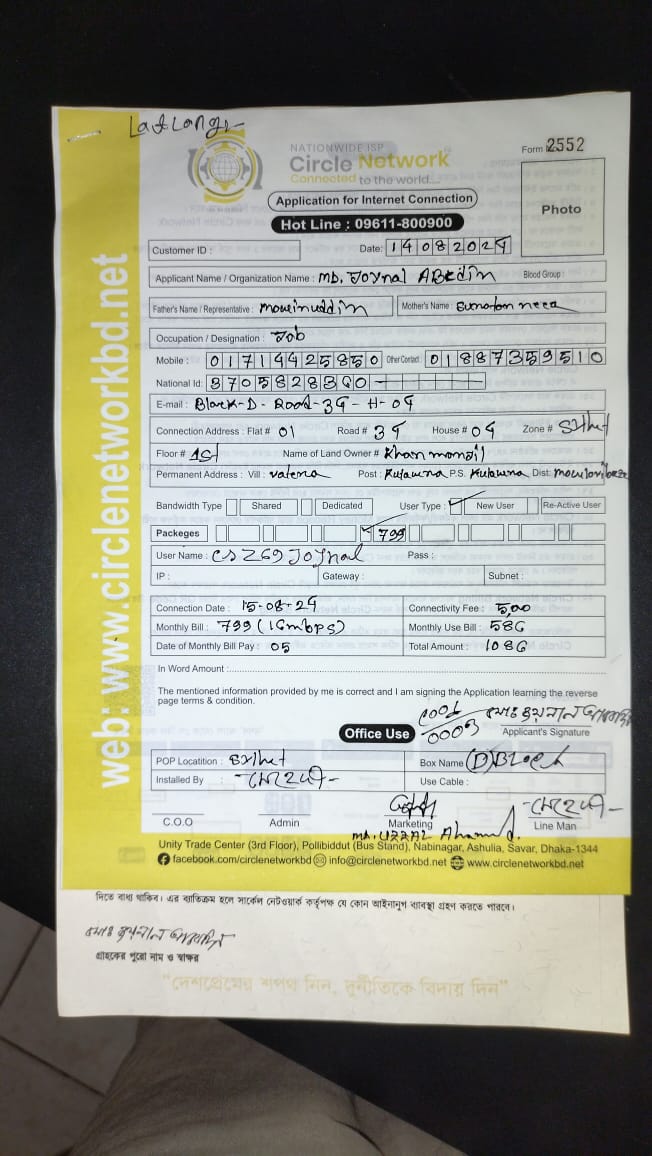 NATIONWIDE ISP
Circle Network
Connected to the world....
Form 2552
Application for Internet Connection
Photo
Hot Line : 09611-800900
Customer ID :
Date: 14082024
Applicant Name / Organization Name : MD. Joynal ABedin Blood Group :
Father's Name / Representative : moueinuddin Mother's Name :
Occupation / Designation : Job
Mobile : 01714425850 Other Contact : 01887359510
National Id: 8705828300
E-mail : Block-D- Road-34-H-04
Connection Address : Flat # 01 Road # 34 House # 04 Zone # Sylhet
Floor # 1st Name of Land Owner # Khan monjil
Permanent Address : Vill : Valena Post : Kulawra P.S. Kulawra Dist:
Bandwidth Type Shared Dedicated User Type : New User Re-Active User
Packages 799
User Name : CSZ69JOYnal Pass :
IP : Gateway : Subnet :
Connection Date : 15-08-24 Connectivity Fee : 500
Monthly Bill : 799 (16mbps) Monthly Use Bill : 586
Date of Monthly Bill Pay : 05 Total Amount : 1086
In Word Amount :
The mentioned information provided by me is correct and I am signing the Application learning the reverse
page terms & condition.
মোঃ জয়নাল আবেদিন
Office Use Applicant's Signature
POP Locatition : Sylhet Box Name (D) Block
Installed By : মেহেদী Use Cable :
মেহেদী
C.O.O Admin Marketing Line Man
MD. UZZAL Ahamed.
Unity Trade Center (3rd Floor), Pollibiddut (Bus Stand), Nabinagar, Ashulia, Savar, Dhaka-1344
facebook.com/circlenetworkbd info@circlenetworkbd.net www.circlenetworkbd.net
web: www.circlenetworkbd.net
দিতে বাধ্য থাকিব। এর ব্যতিক্রম হলে সার্কেল নেটওয়ার্ক কর্তৃপক্ষ যে কোন আইনানুগ ব্যবস্থা গ্রহণ করতে পারবে।
মোঃ জয়নাল আবেদিন
গ্রাহকের পুরো নাম ও স্বাক্ষর
"দেশপ্রেমের শপথ নিন, দুর্নীতিকে বিদায় দিন"